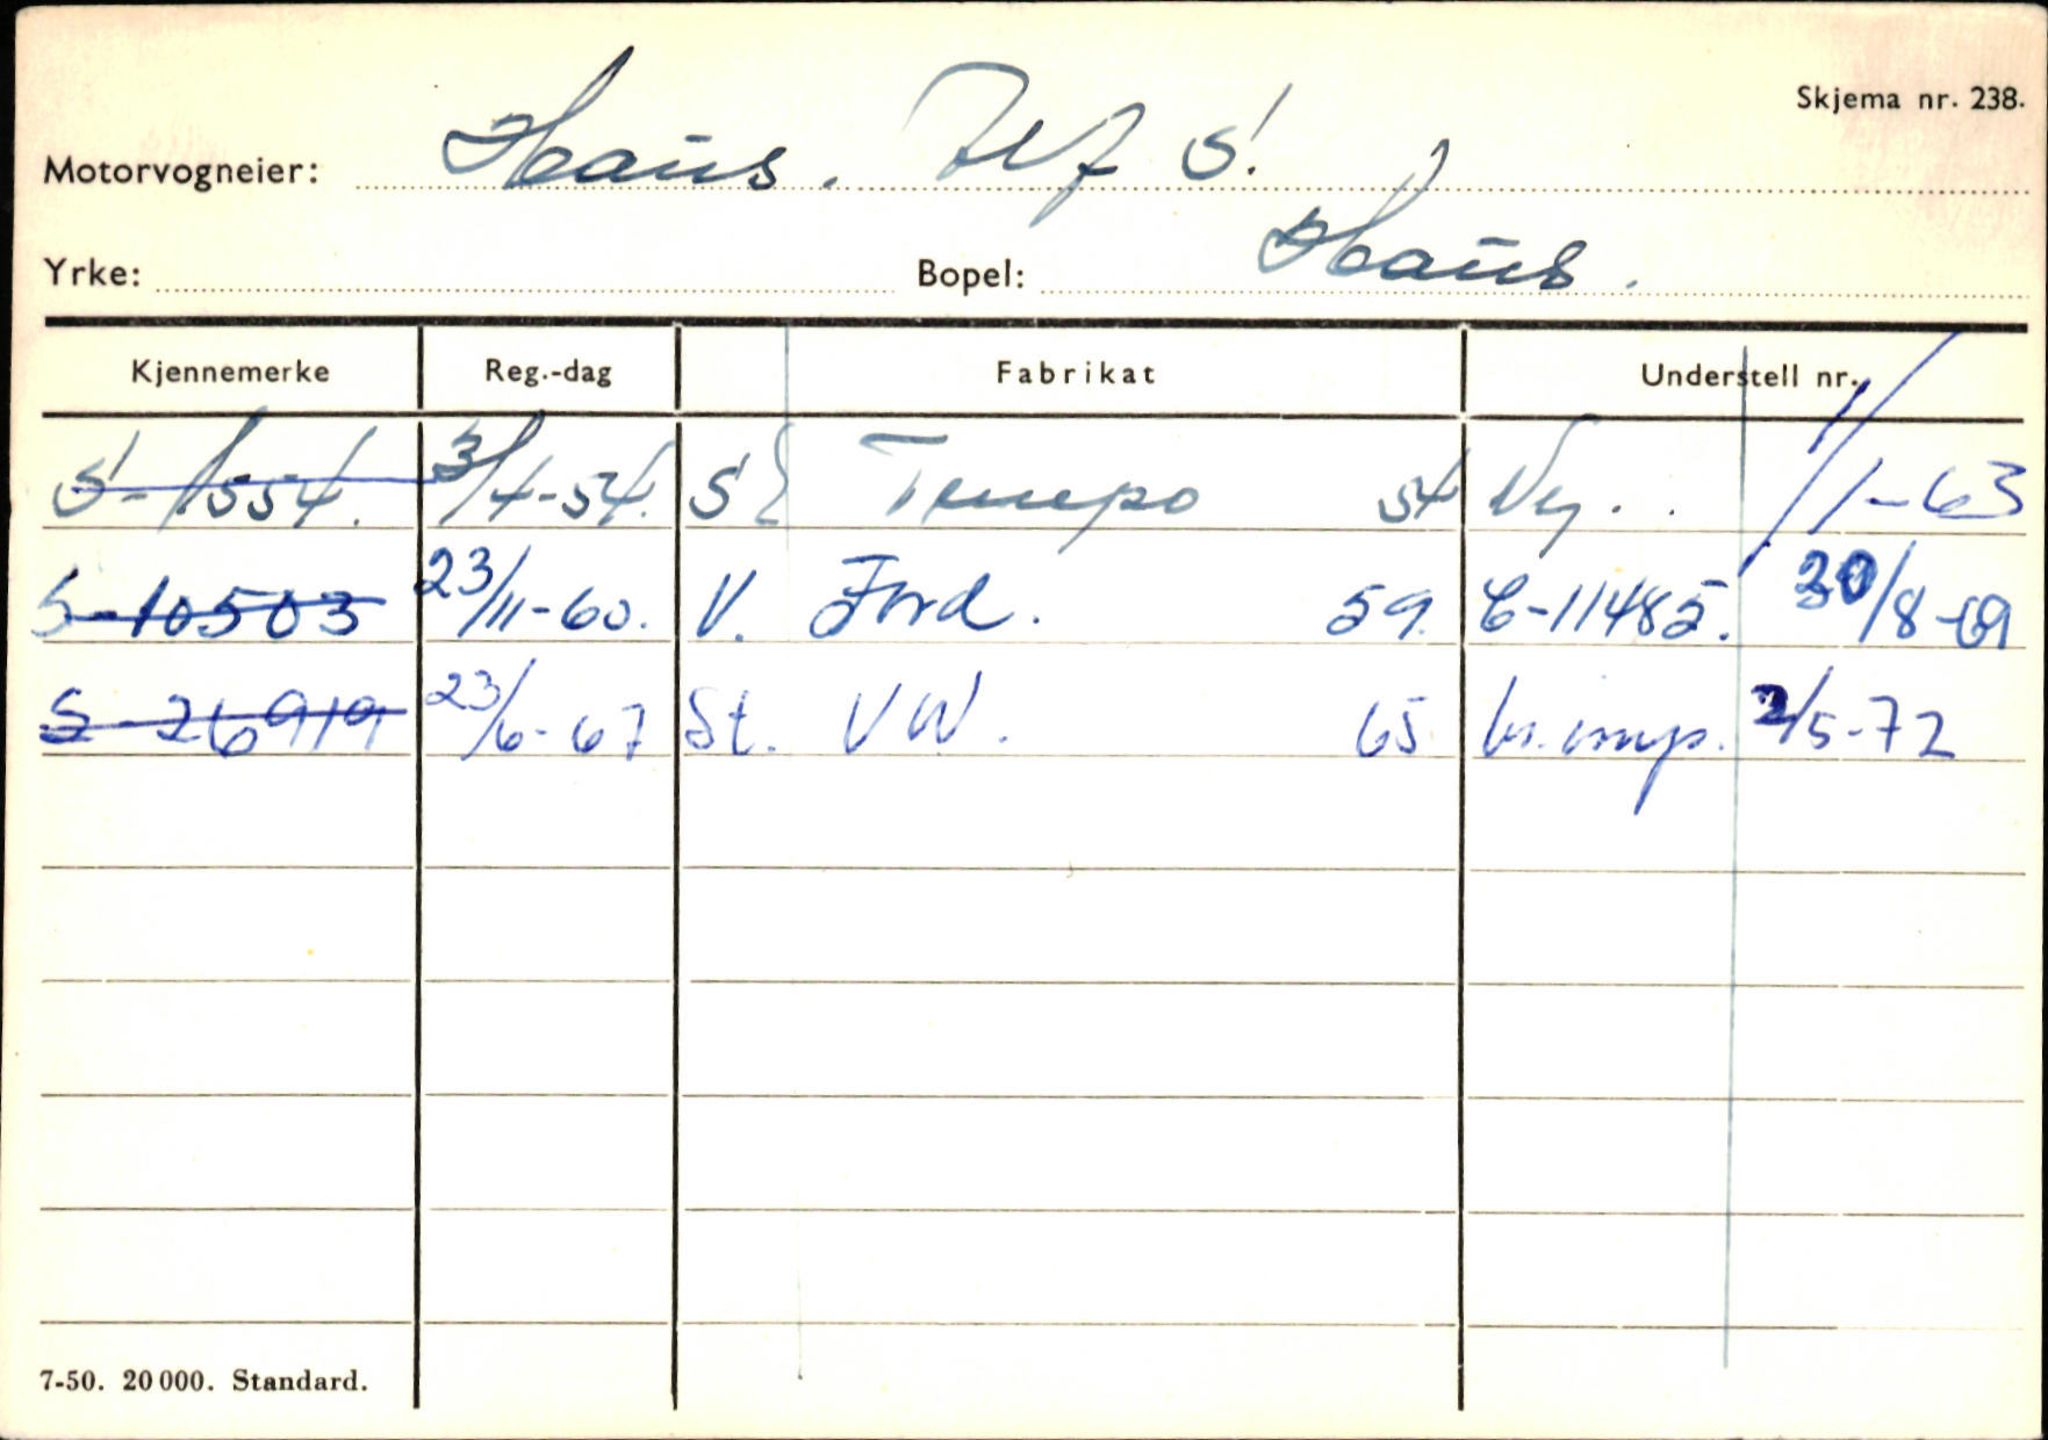 Skjema nr. 238.
Motorvogneier: Haus. Alf S.
Yrke: Bopel: Haus.
Kjennemerke Reg.-dag Fabrikat Understell nr.
S-1554. 3/4-54. St Tempo 54 Ny. 1/1-63
S-10503 23/11-60. V. Ford. 59. C-11485. 30/8-69
S-26919 23/6-67 St. VW. 65 br.imp. 2/5-72
7-50. 20 000. Standard.